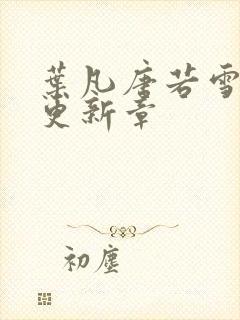 葉凡唐若雪
更新章
初塵